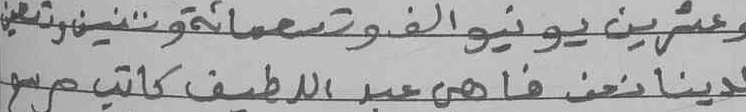 وعشرين يونيو الف وتسعمائة وتنين وتسعين
لدينا نحن فاهي عبد اللطيف كاتب مرسم